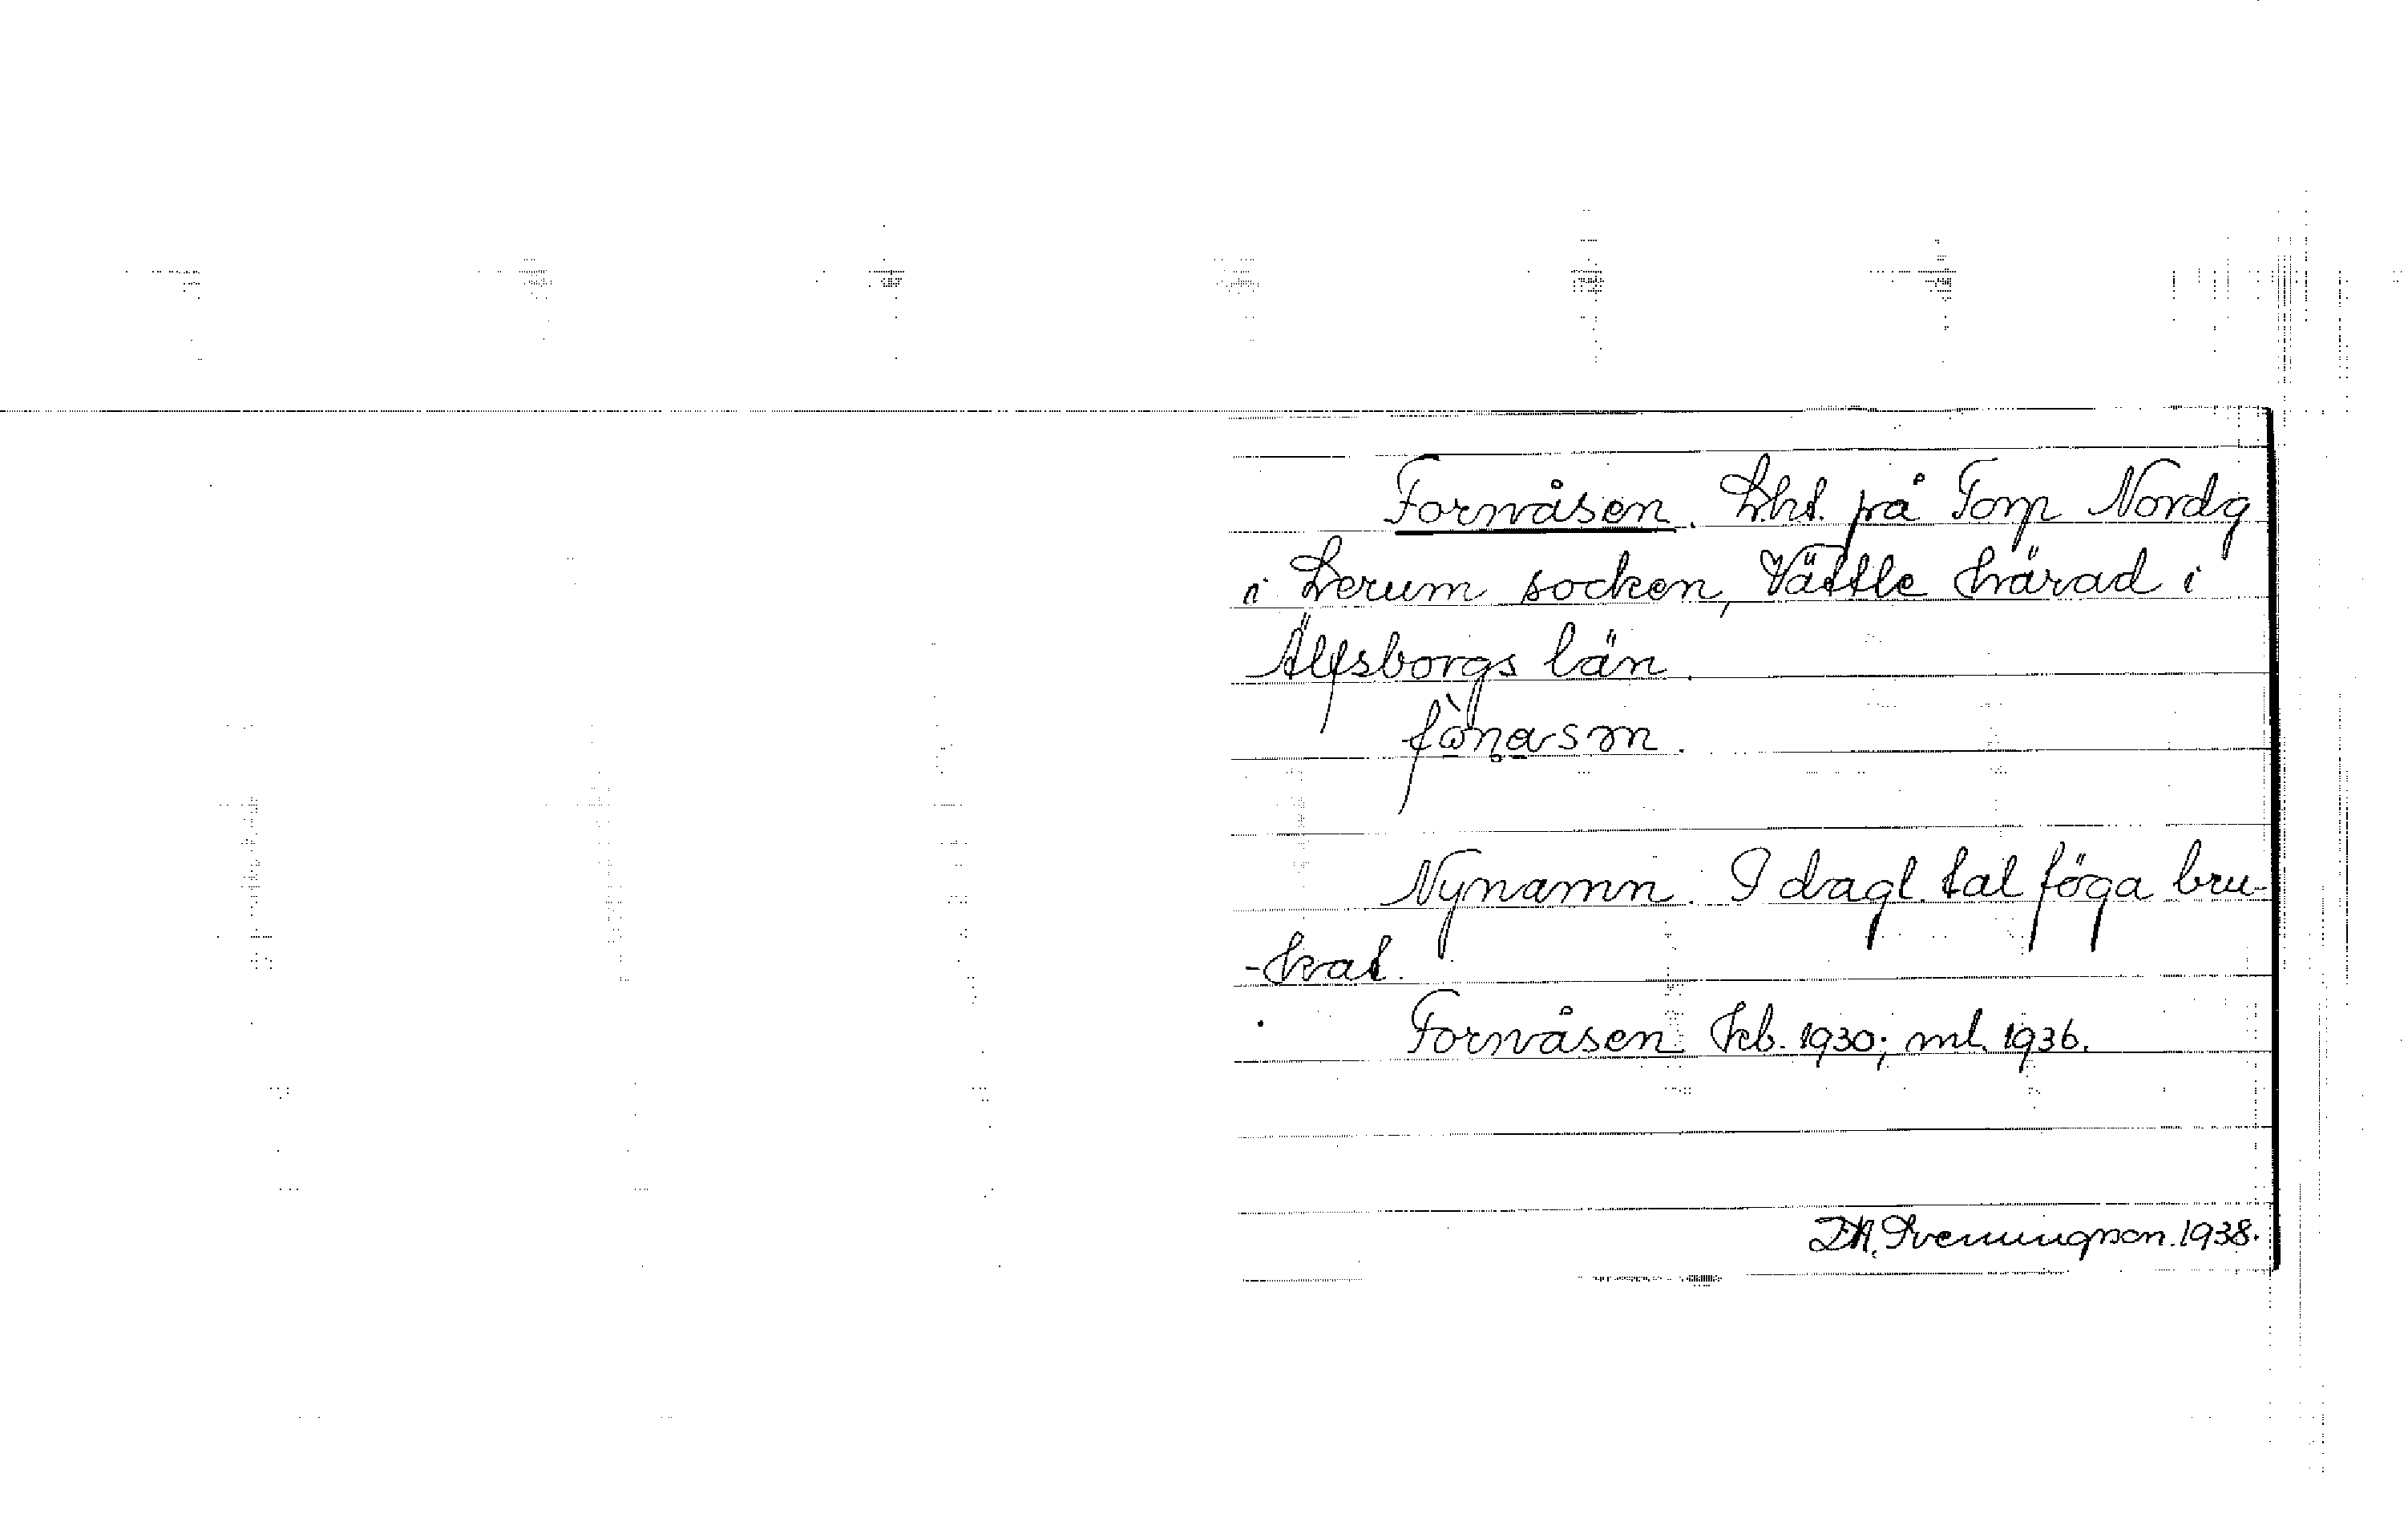 Fornåsen. Lht. på Torp Nordg
i Lerum socken, Vättle härad i
Älfsborgs län.
Nynamn. I dagl. tal föga bru-
-kat.
Fornåsen Kb. 1930; ml. 1936.
Svenungson. 1938.